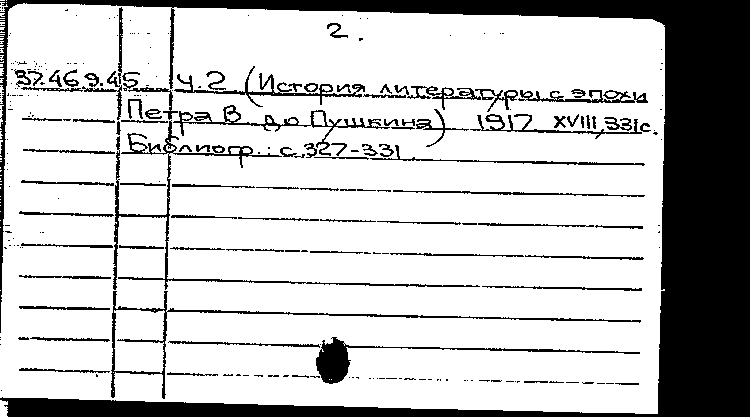 2.
37.46 9.45 ч.2 (История литературы с эпохи
Петра В. до Пушкина) 1917 XVIII, 331с.
Библиогр.: с.327-331.